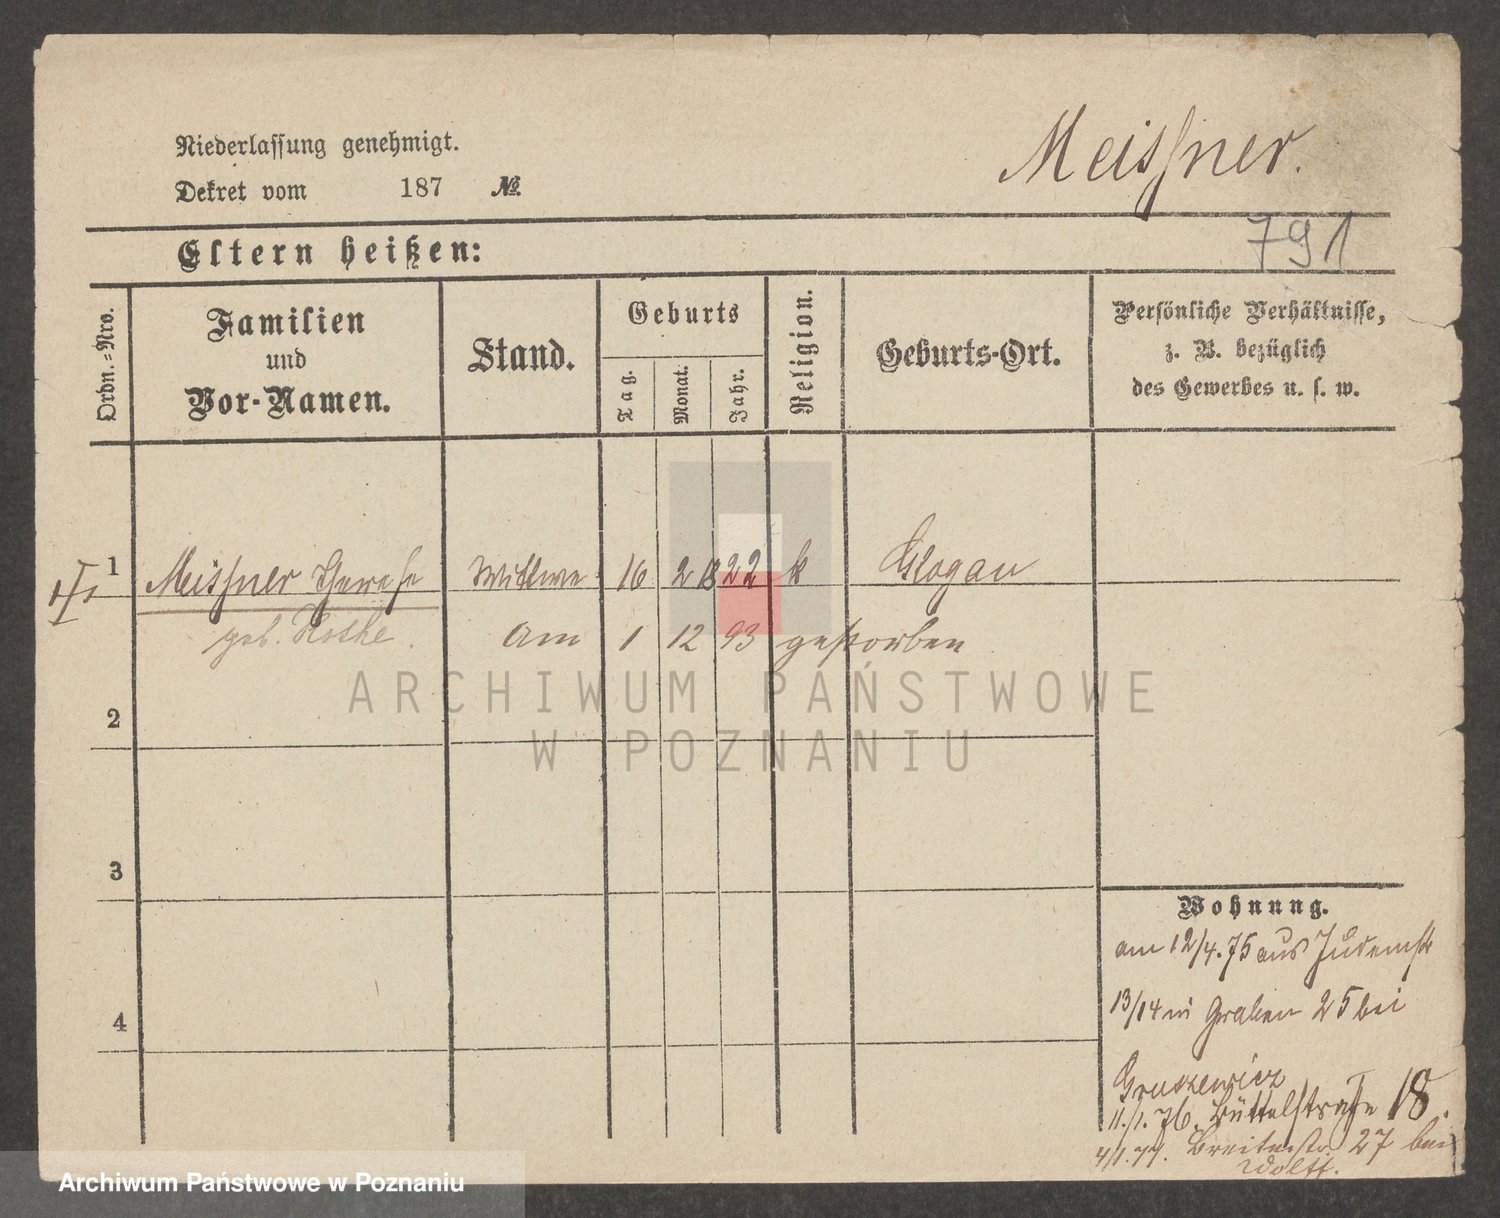 Niederlassung genehmigt.
Dekret vom 187 №
Meissner.
Eltern heißen:
791
Ordn.=Nro.
Familien
und
Vor-Namen.
Stand.
Geburts
Tag.
Monat.
Jahr.
Religion.
Geburts-Ort.
Persönliche Verhältnisse,
z. B. bezüglich
des Gewerbes u. s. w.
1 Meissner Therese Wittwe 16 2 1822 k Glogau
geb. Rothe. Am 1 12 93 gestorben
2
3
4
Wohnung.
am 12/4.75 aus Judenstr
13/14 in Graben 25 bei
11./1.76. Büttelstraße 18.
4/1.77. Breitestr. 27 bei
Wolff.
ARCHIWUM PAŃSTWOWE
W POZNANIU
Archiwum Państwowe w Poznaniu